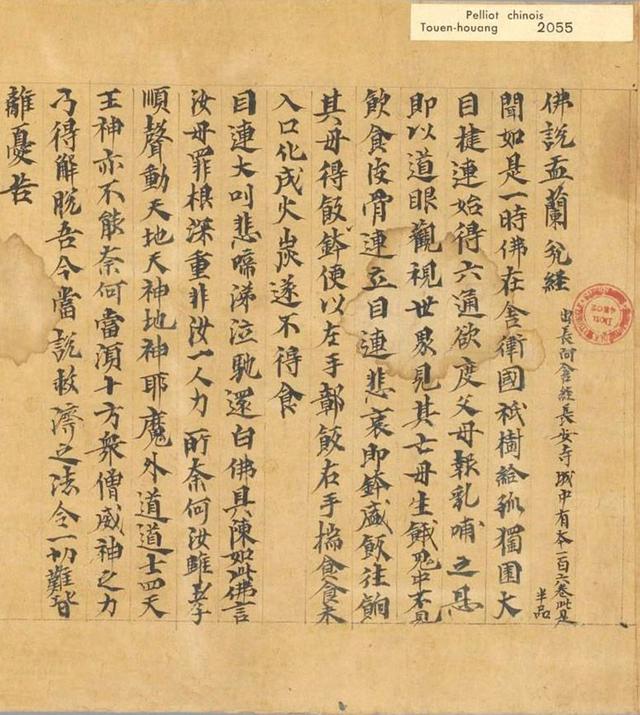 Pelliot chinois
Touen-houang 2055
佛說盂蘭瓫經 出長阿含經長安寺城中有本一百六卷此是半品
聞如是一時佛在舍衛國祇樹給孤獨園大
目揵連始得六通欲度父母報乳哺之恩
即以道眼觀視世界見其亡母生餓鬼中不見
飲食皮骨連立目連悲哀即鉢盛飯往餉
其母得飯鉢便以左手鄣飯右手揣食食未
入口化成火炭遂不得食
目連大叫悲啼涕泣馳還白佛具陳如此佛言
汝母罪根深重非汝一人力所奈何汝雖孝
順聲動天地天神地神耶魔外道道士四天
王神亦不能奈何當須十方衆僧威神之力
乃得解脫吾今當說救濟之法令一切難皆
離憂苦